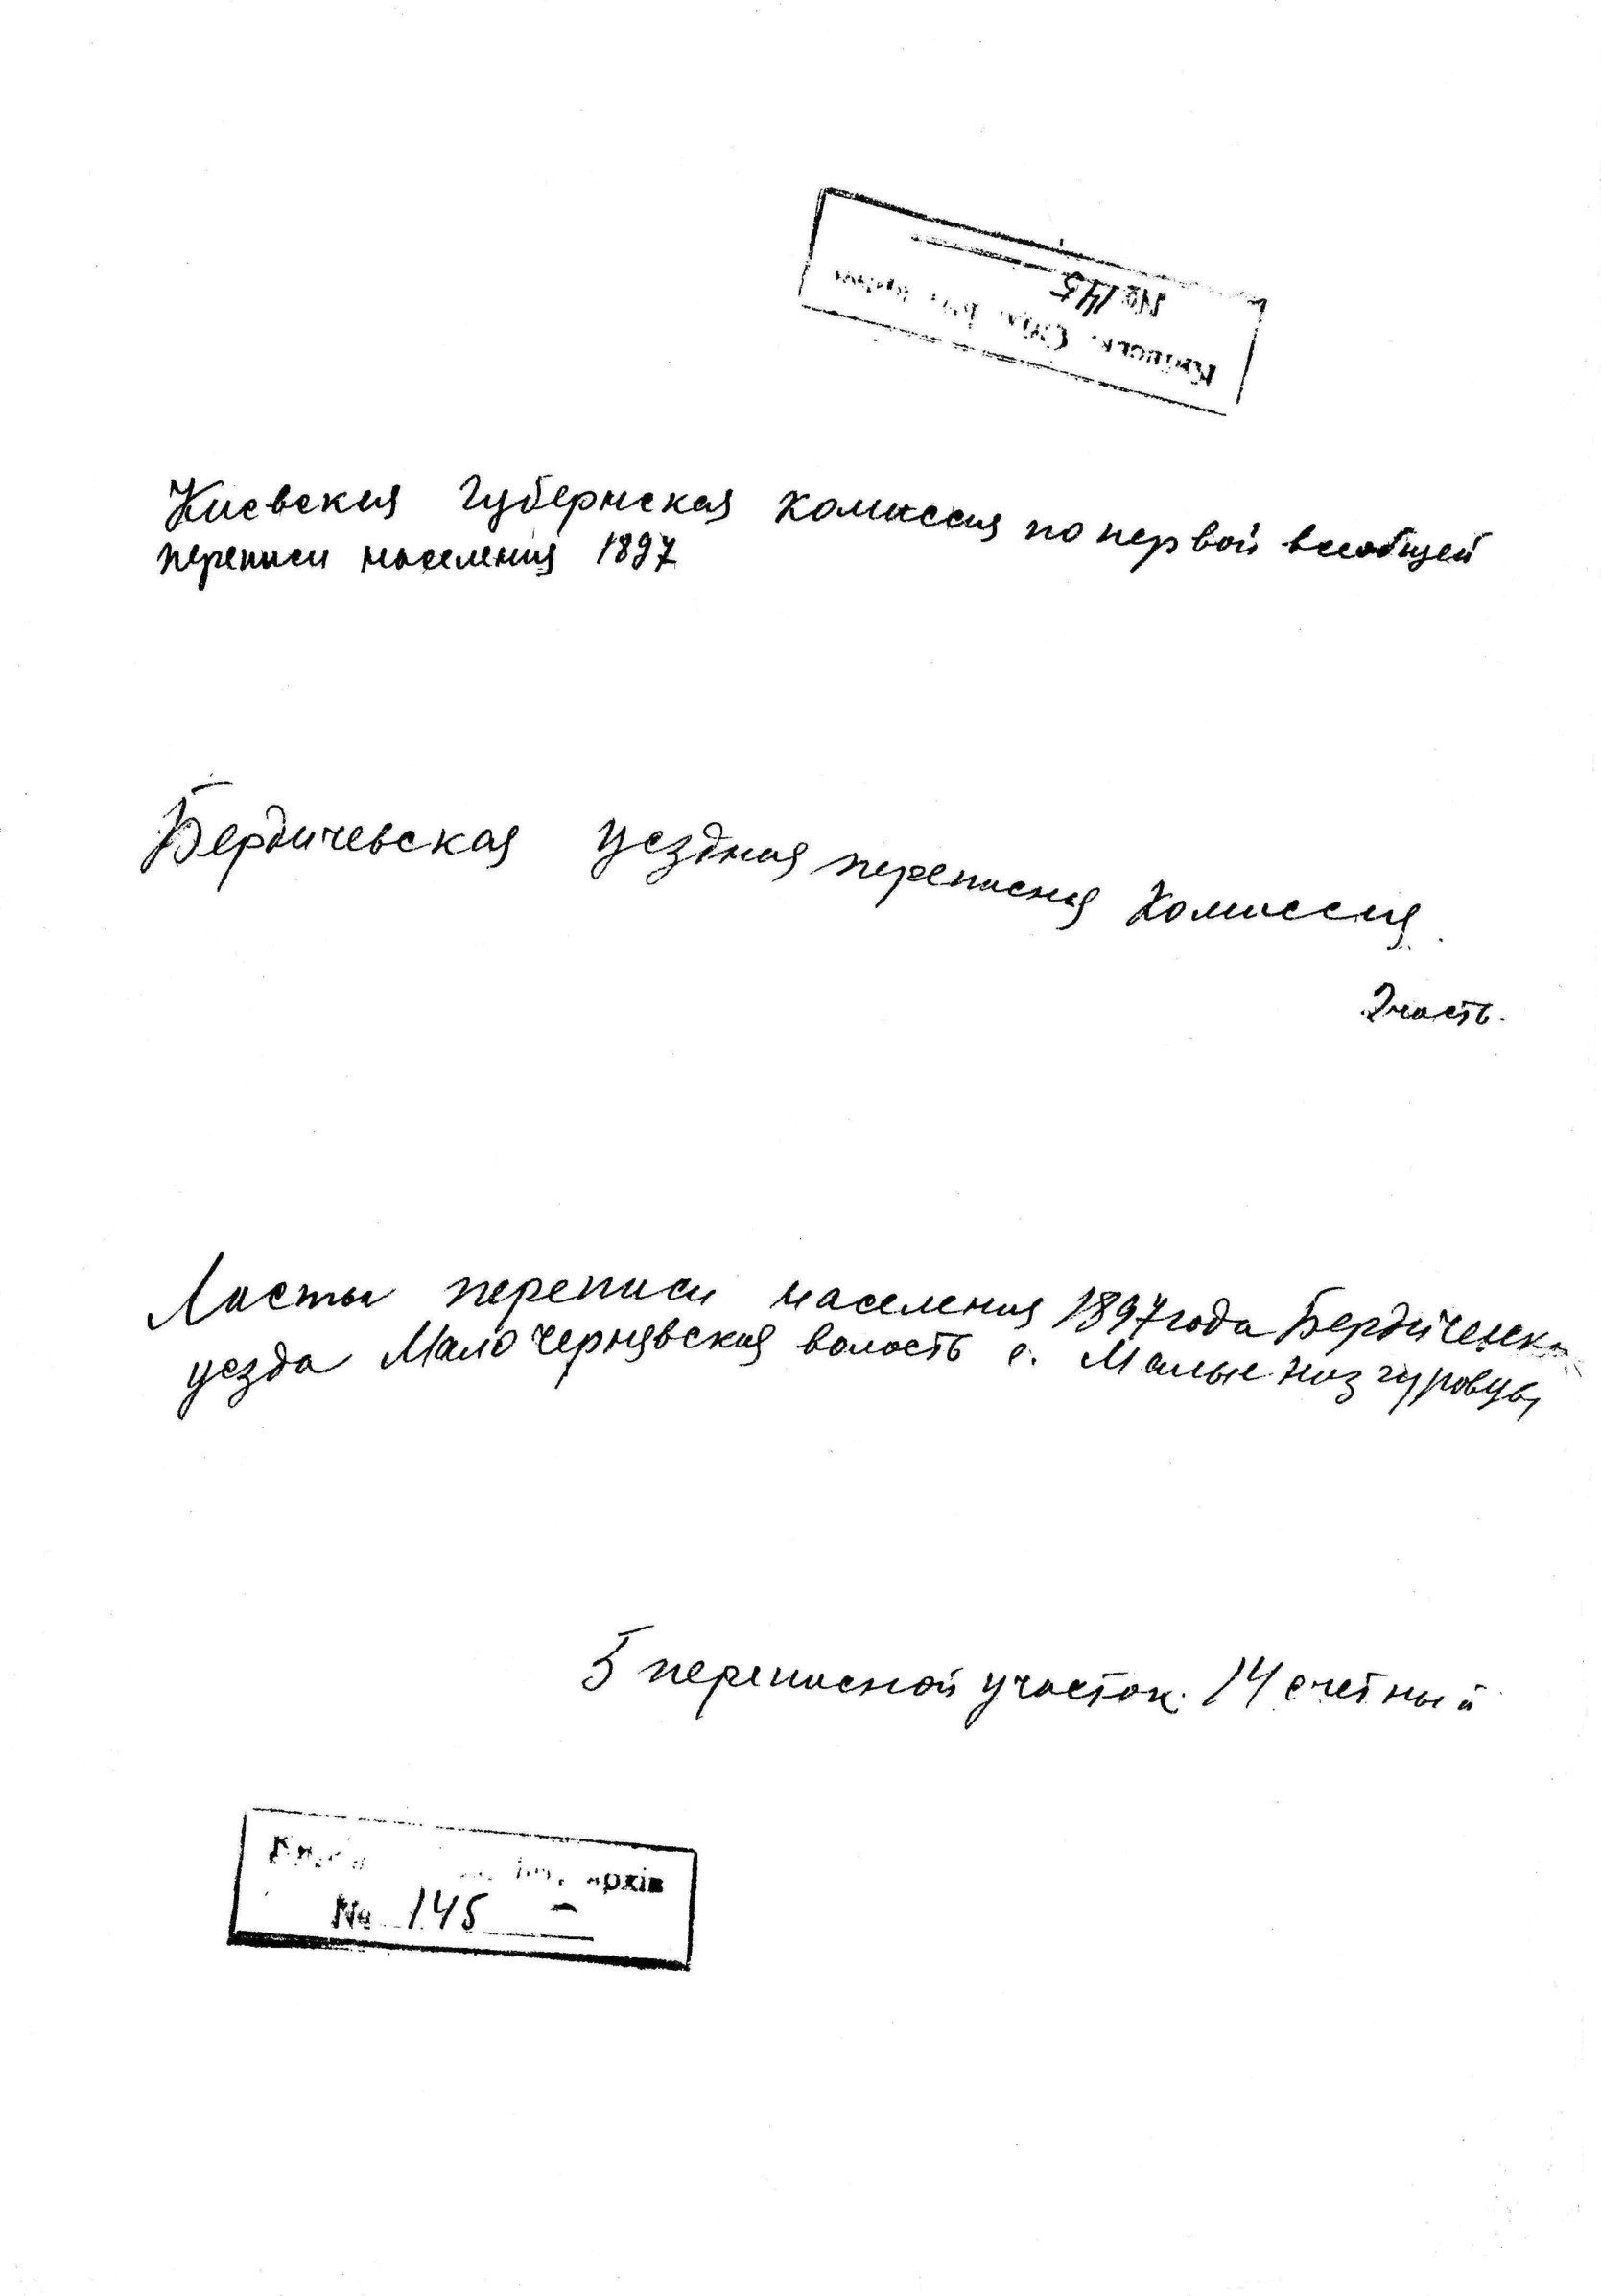 № 145
Київськ. Обл. Іст. Архів
Киевская Губернская комиссия по первой всеобщей
переписи населения 1897
Бердичевская уездная переписная комиссия.
2 часть.
Листы переписи населения 1897 года
уезда Мало чернявская волость с. Малые низгуровцы
5 переписной участок. 14 счетный
архів
№ 145